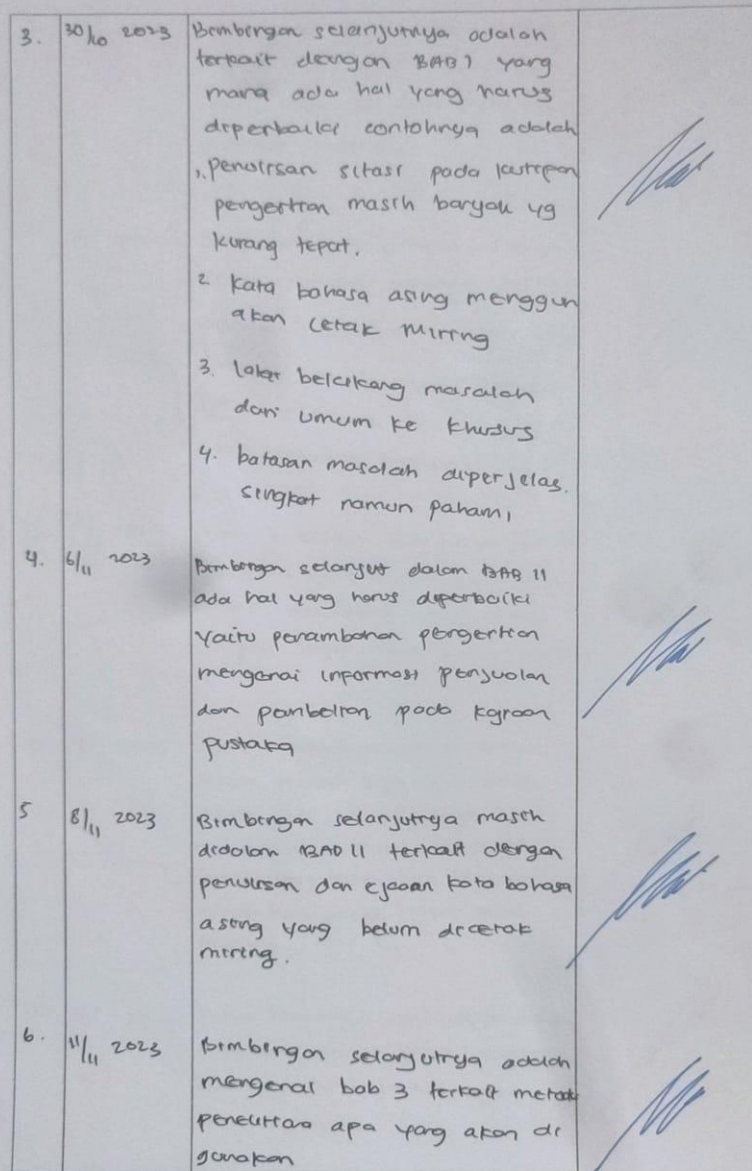 3. 30/10 2023 Bimbingan selanjutnya adalah
terkait dengan BAB 1 yang
mana ada hal yang harus
diperbaiki contohnya adalah
1. Penulisan sitasi pada kutipan
pengertian masih banyak yg
kurang tepat.
2 Kata bahasa asing menggun
akan cetak miring
3. latar belakang masalah
dari umum ke khusus
4. batasan masalah diperjelas.
singkat namun paham,
4. 6/11 2023 Bimbingan selanjut dalam BAB 11
ada hal yang harus diperbaiki
yaitu penambahan pengertian
mengenai informasi penjualan
dan pembelian pada kajian
pustaka
5 8/11 2023 Bimbingan selanjutnya masih
didalam BAB 11 terkait dengan
penulisan dan ejaan kata bahasa
asing yang belum dicetak
miring.
6. 11/11 2023 Bimbingan selanjutnya adalah
mengenai bab 3 terkait metode
penelitian apa yang akan di
gunakan